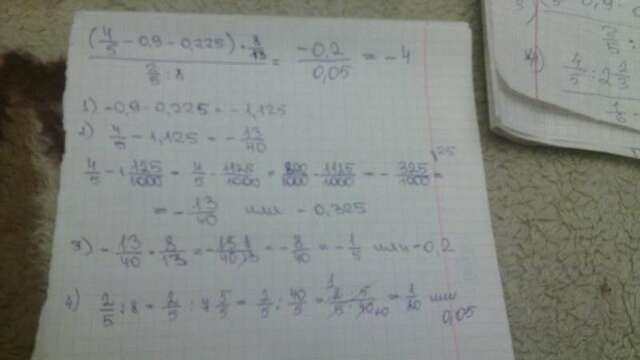 (4/5 - 0,9 - 0,225) · 8/13 / 2/5 : 8 = -0,2/0,05 = -4
1) -0,9 - 0,225 = -1,125
2) 4/5 - 1,125 = -13/40
4/5 - 1 125/1000 = 4/5 - 1125/1000 = 800/1000 - 1125/1000 = -325/1000 =
= -13/40 или -0,325
3) -13/40 · 8/13 = = -8/40 = -1/5 или -0,2
4) 2/5 : 8 = 2/5 : 7 5/5 = 2/5 : 40/5 = = 1/20 или 0,05
4/5 : 2 2/3